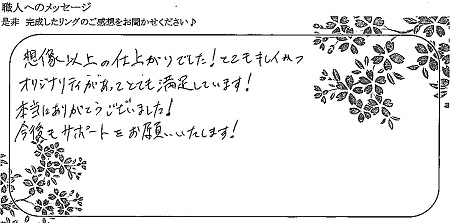 職人へのメッセージ
是非 完成したリングのご感想をお聞かせください♪
想像以上の仕上がりでした！とてもキレイかつ
オリジナリティがあってとても満足しています！
本当にありがとうございました！
今後もサポートをお願いいたします！